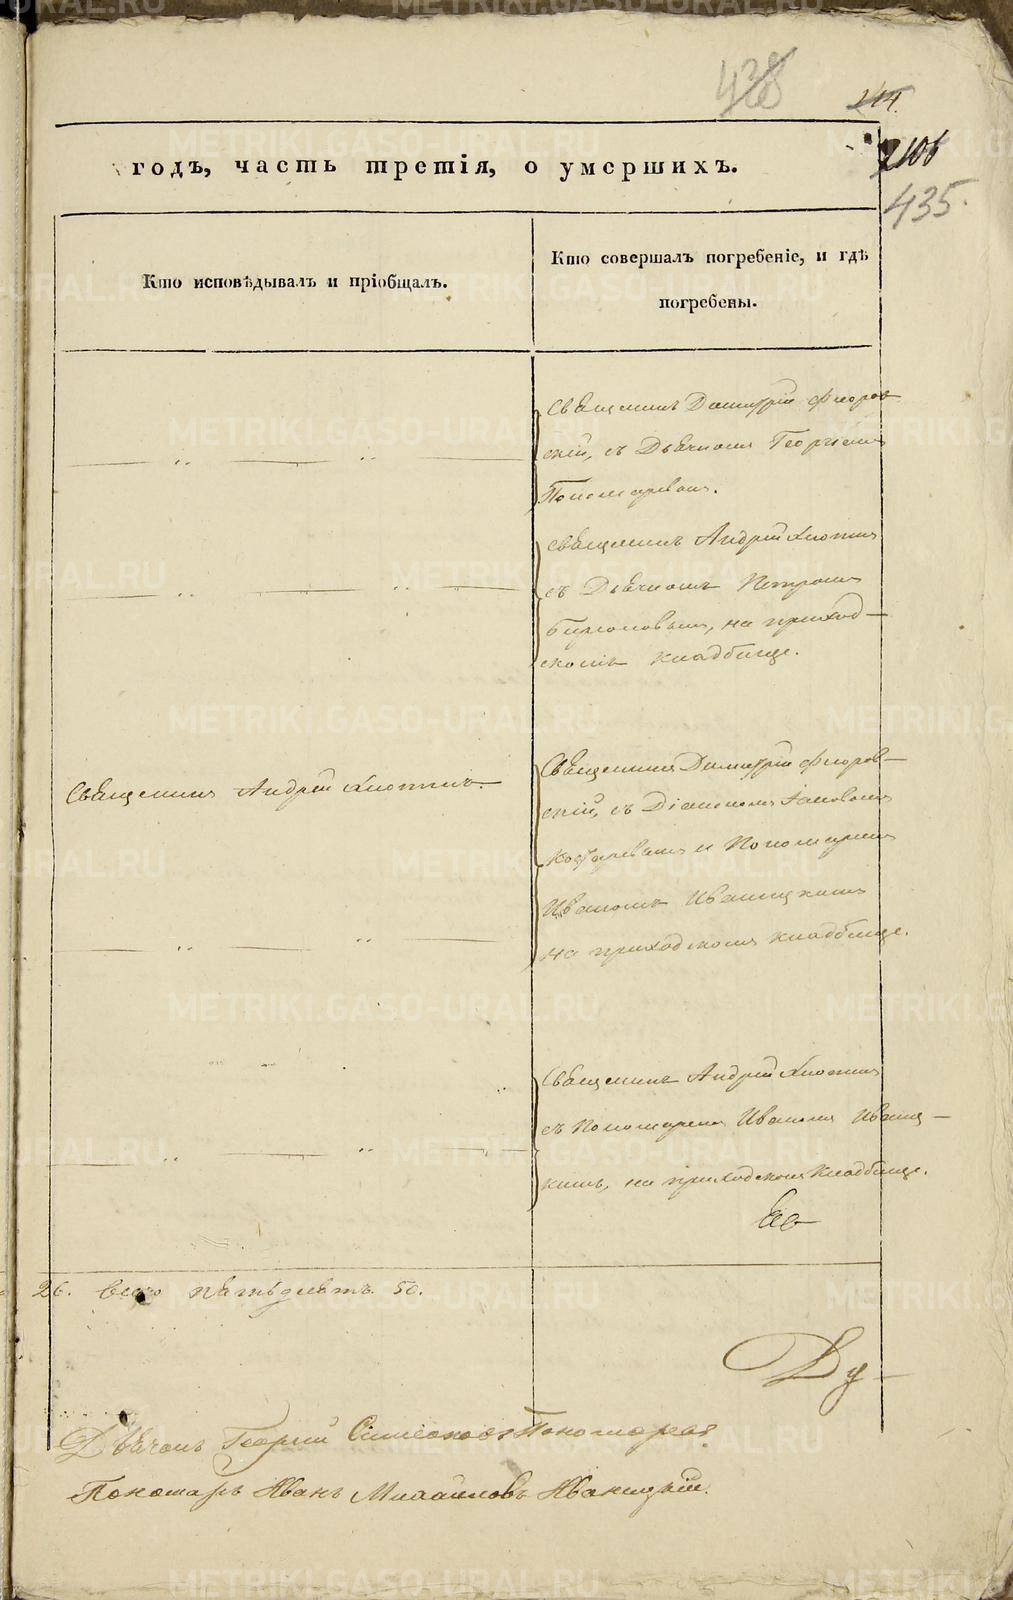 438
244.
106
435.
годъ, часть третія, о умершихъ.
Кто исповѣдывалъ и пріобщалъ.
Кто совершалъ погребеніе, и гдѣ
погребены.
Священникъ Димитрій Флоров
скій, съ Дьячкомъ Георгіемъ
Пономаревымъ.
Священникъ Андрей
съ Дьячкомъ Петромъ
на приход-
скомъ кладбище.
Священникъ Андрей
Священникъ Димитрій Флоров-
скій, съ Діакономъ Іаковомъ
и Пономаремъ
Иваномъ Иваницкимъ
на приходскомъ кладбище.
Священникъ Андрей
съ Пономаремъ Иваномъ Иваниц-
кимъ, на приходскомъ кладбище.
26. всего пятьдесятъ 50.
Ду-
Дьячокъ Георгій Симеоновъ Пономаревъ
Пономарь Иванъ Михаиловъ Иваницкій.
METRIKI.GASO-URAL.RU